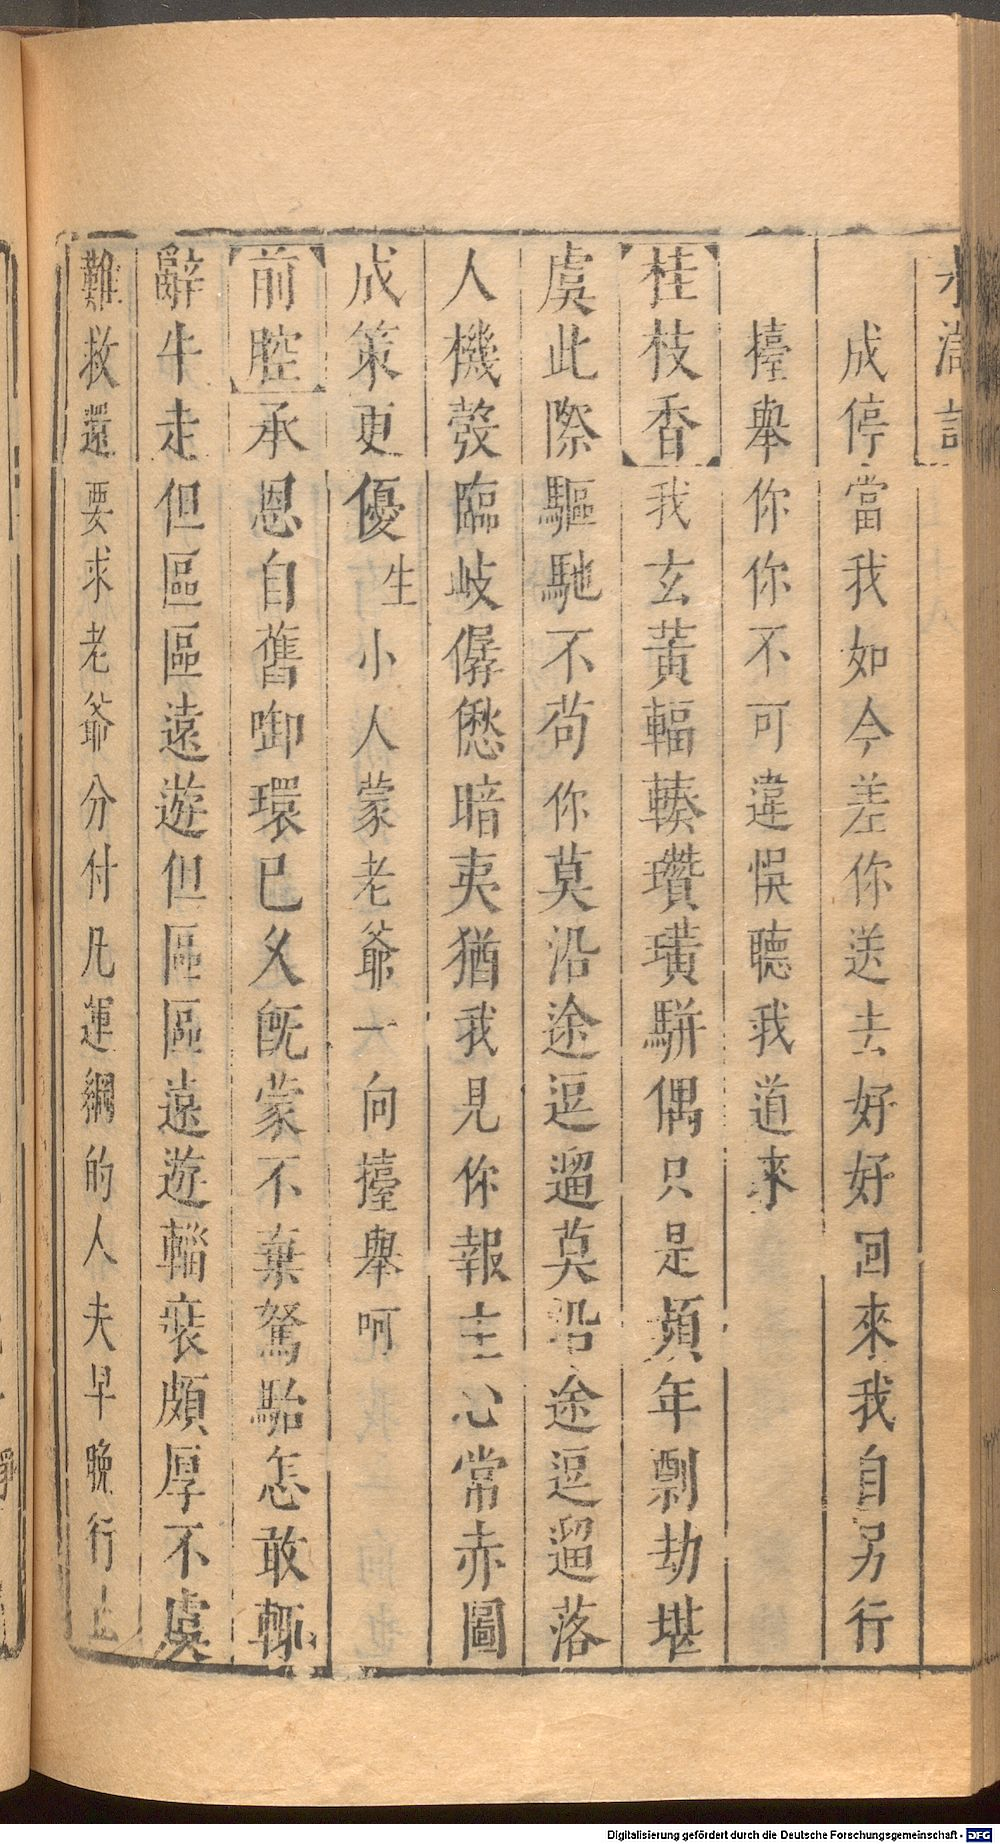 水滸記
成停當我如今差你送去好好回來我自另行
擡舉你你不可違悞聽我道來
桂枝香我玄黃輻輳瓚璜駢偶只是頻年剽劫堪
虞此際驅馳不苟你莫沿途逗遛莫沿途逗遛落
人機彀臨岐僝僽暗夷猶我見你報主心常赤圖
成策更優生小人蒙老爺一向擡舉呵
前腔承恩自舊啣環已久旣蒙不棄駑駘怎敢輒
辭牛走但區區遠遊但區區遠遊輜裝頗厚不虞
難救還要求老爺分付凡運綱的人夫早晚行止
Digitalisierung gefördert durch die Deutsche Forschungsgemeinschaft - DFG